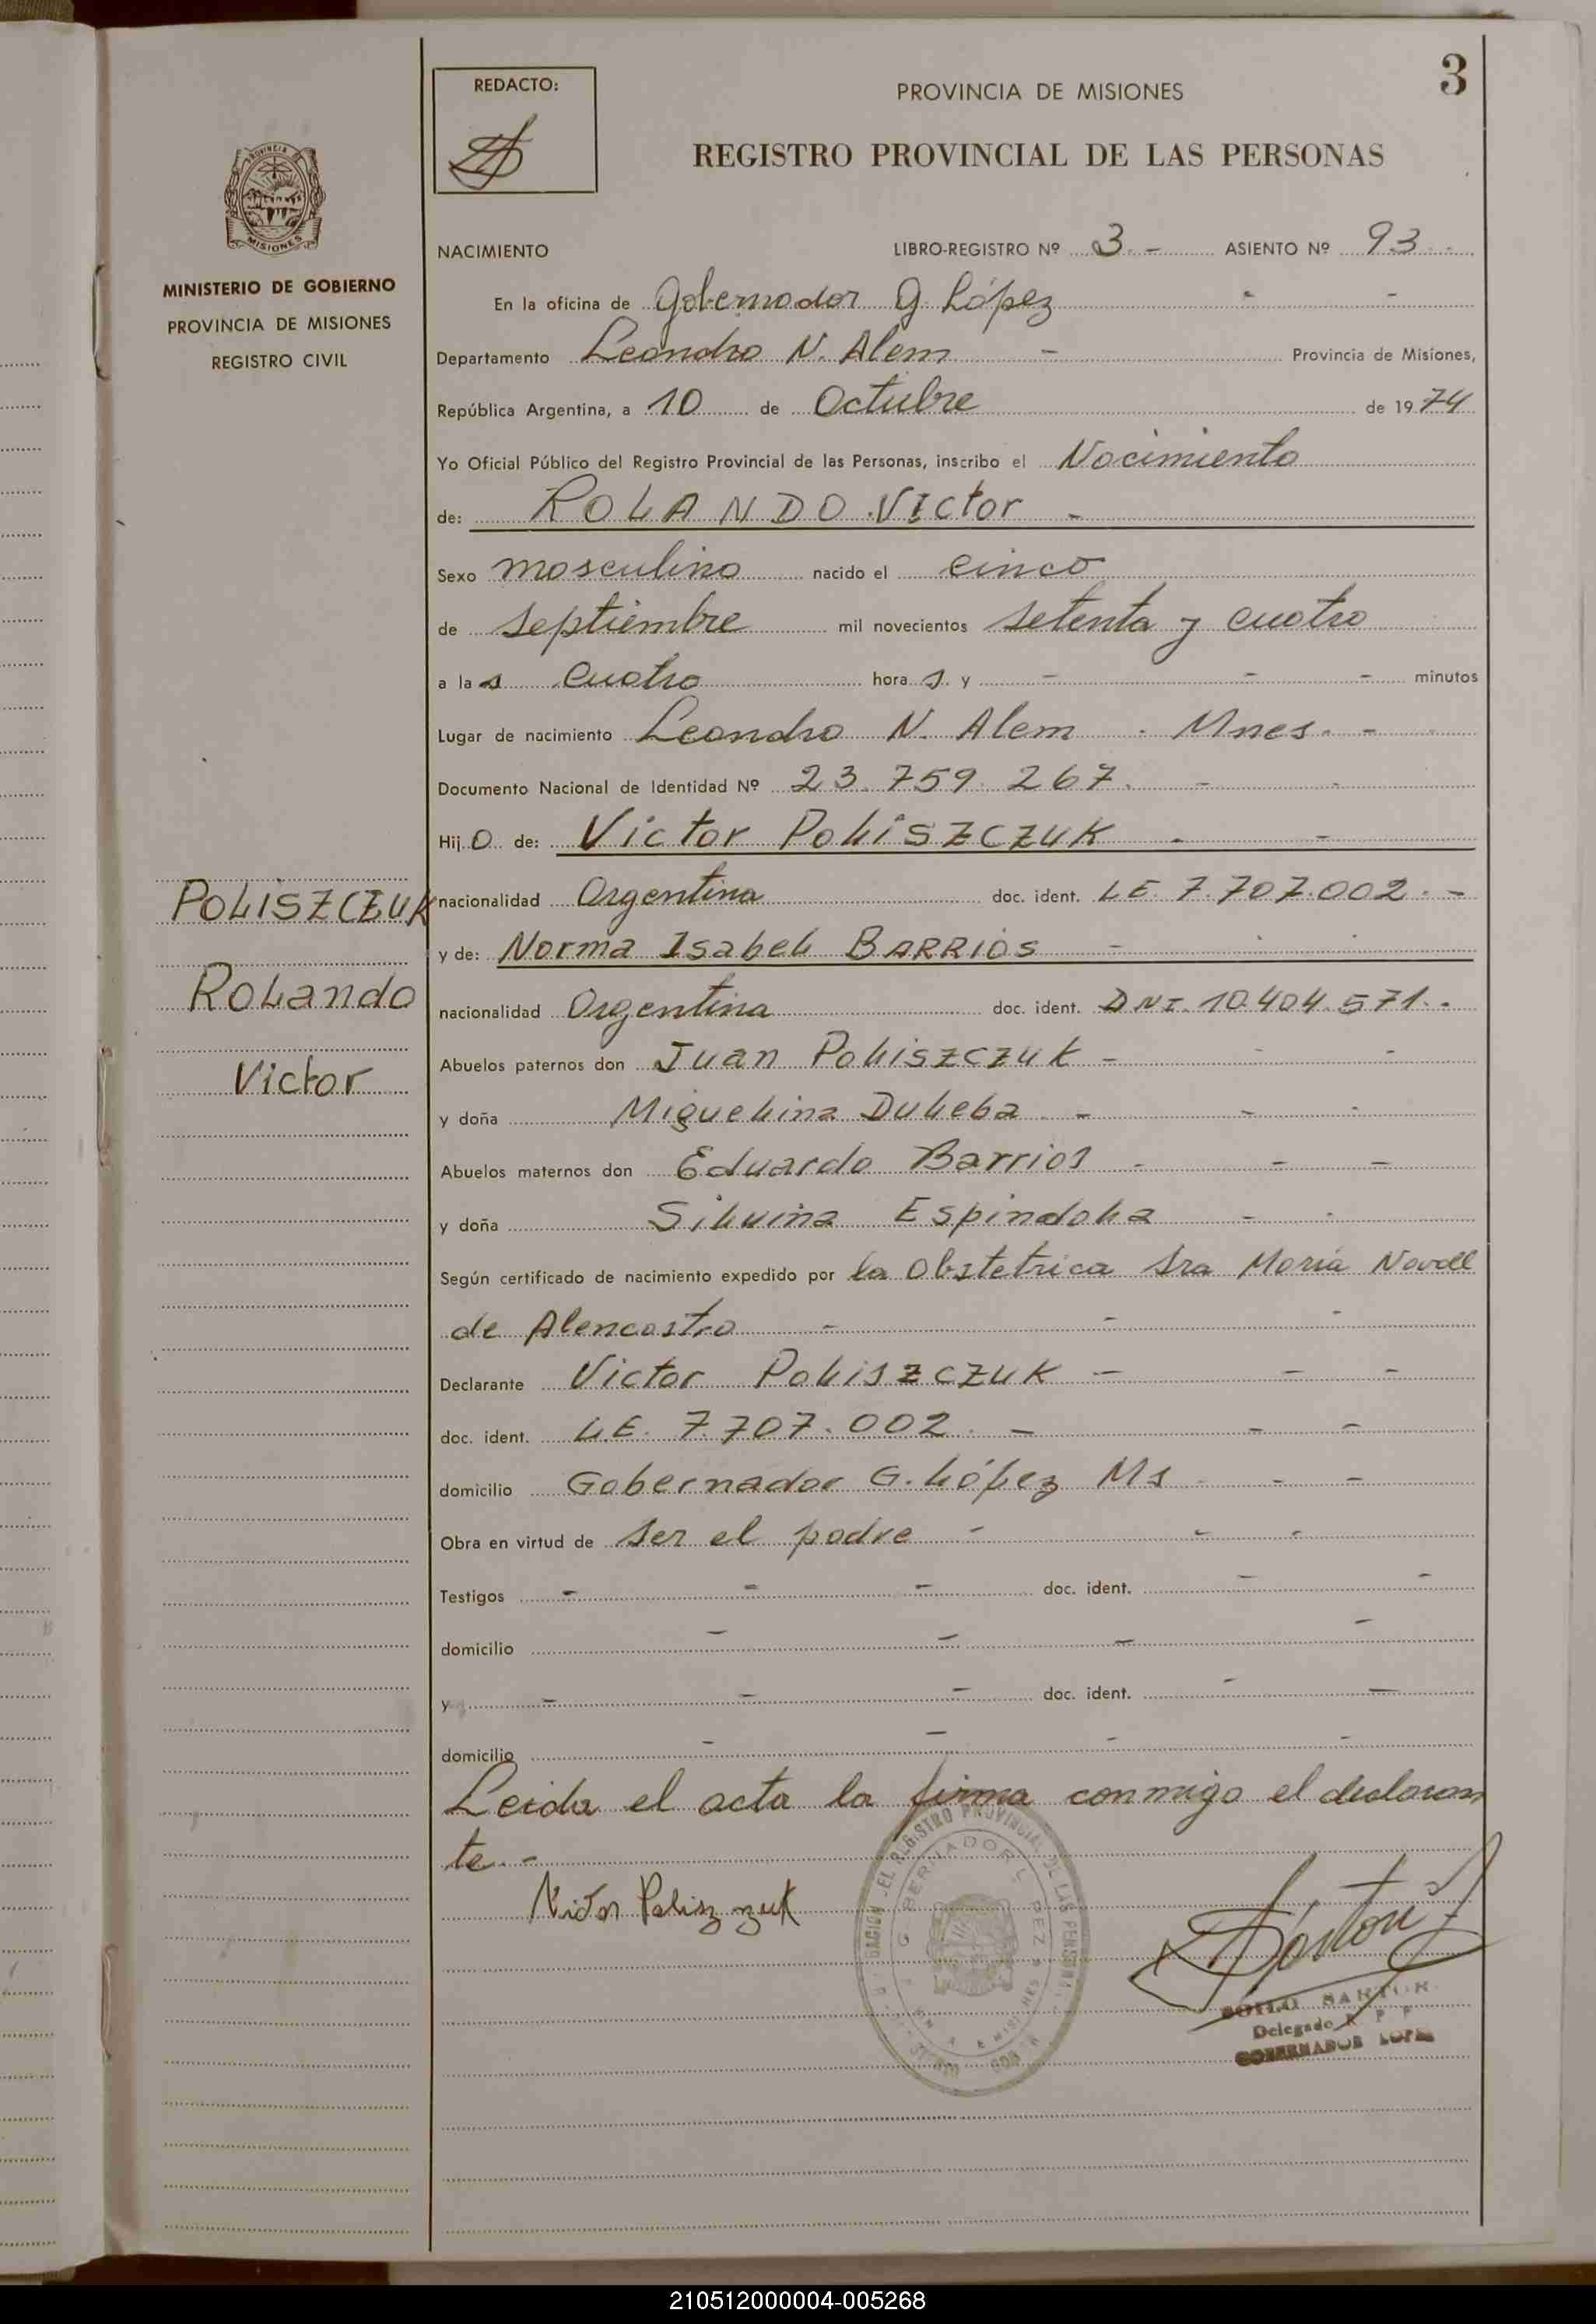 3
REDACTO:
PROVINCIA DE MISIONES
REGISTRO PROVINCIAL DE LAS PERSONAS
PROVINCIA
MISIONES
MINISTERIO DE GOBIERNO
PROVINCIA DE MISIONES
REGISTRO CIVIL
NACIMIENTO LIBRO-REGISTRO Nº 3.- ASIENTO Nº 93.-
En la oficina de Gobernador G. López - -
Departamento Leandro N. Alem - Provincia de Misiones,
República Argentina, a 10 de Octubre de 1974
Yo Oficial Público del Registro Provincial de las Personas, inscribo el Nacimiento
de: ROLANDO Victor -
Sexo masculino nacido el cinco
de septiembre mil novecientos setenta y cuatro
a las cuatro horas y - - - minutos
Lugar de nacimiento Leandro N. Alem - Mnes. -
Documento Nacional de Identidad Nº 23.759.267. - -
Hijo de: Victor POLISZCZUK - -
nacionalidad Argentina doc. ident. LE. 7.707.002.-
y de: Norma Isabel BARRIOS -
nacionalidad Argentina doc. ident. DNI. 10.404.571.-
Abuelos paternos don Juan Poliszczuk - - -
y doña Miguelina Duleba - - -
Abuelos maternos don Eduardo Barrios - - -
y doña Siluina Espindola - -
Según certificado de nacimiento expedido por la Obstetrica Sra María Novall
de Alencastro - - -
Declarante Victor Poliszczuk - - -
doc. ident. L.E. 7.707.002. - - -
domicilio Gobernador G. López Ms - - -
Obra en virtud de ser el padre - - -
Testigos - - - doc. ident. - -
domicilio - - - -
y - - - doc. ident. - -
domicilio - - - -
Leida el acta la firma conmigo el declaran
te.-
POLISZCZUK
Rolando
Victor
Victor Poliszzuk
Sartori
REGISTRO PROVINCIAL DE LAS PERSONAS
SARTORI
Delegado R. P. P.
GOBERNADOR LOPEZ
210512000004-005268